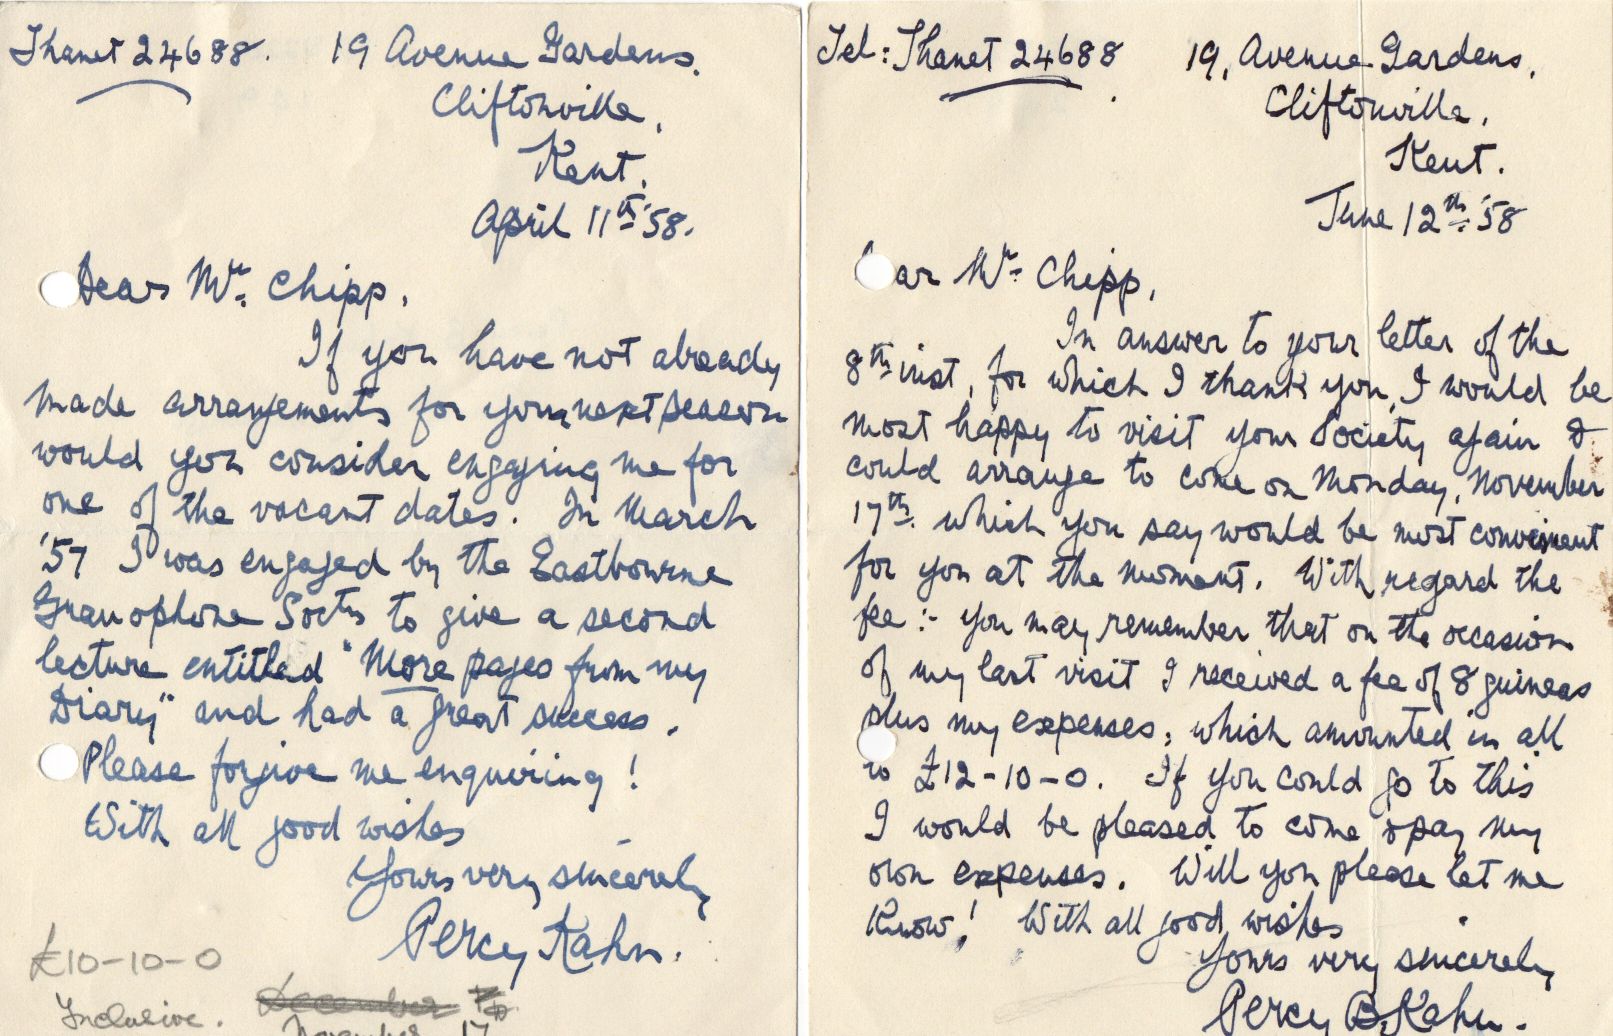 Thanet 24688. 19 Avenue Gardens.
Cliftonville,
Kent.
April 11th '58.
Dear Mr. Chipp,
If you have not already
made arrangements for your next season
would you consider engaging me for
one of the vacant dates. In March
'57 I was engaged by the Eastbourne
Gramophone Socty to give a second
lecture entitled "More pages from my
Diary" and had a great success.
Please forgive me enquiring!
With all good wishes
Yours very sincerely
Percy Kahn.
£10-10-0
Inclusive.
December
November 17
Tel: Thanet 24688 19, Avenue Gardens,
Cliftonville,
Kent.
June 12th '58
ar Mr. Chipp,
In answer to your letter of the
8th inst, for which I thank you, I would be
most happy to visit your Society again &
could arrange to come on Monday, November
17th. which you say would be most convenient
for you at the moment. With regard the
fee:- you may remember that on the occasion
of my last visit I received a fee of 8 guineas
plus my expenses, which amounted in all
to £12-10-0. If you could go to this
I would be pleased to come & pay my
own expenses. Will you please let me
know! With all good wishes
Yours very sincerely
Percy B. Kahn.